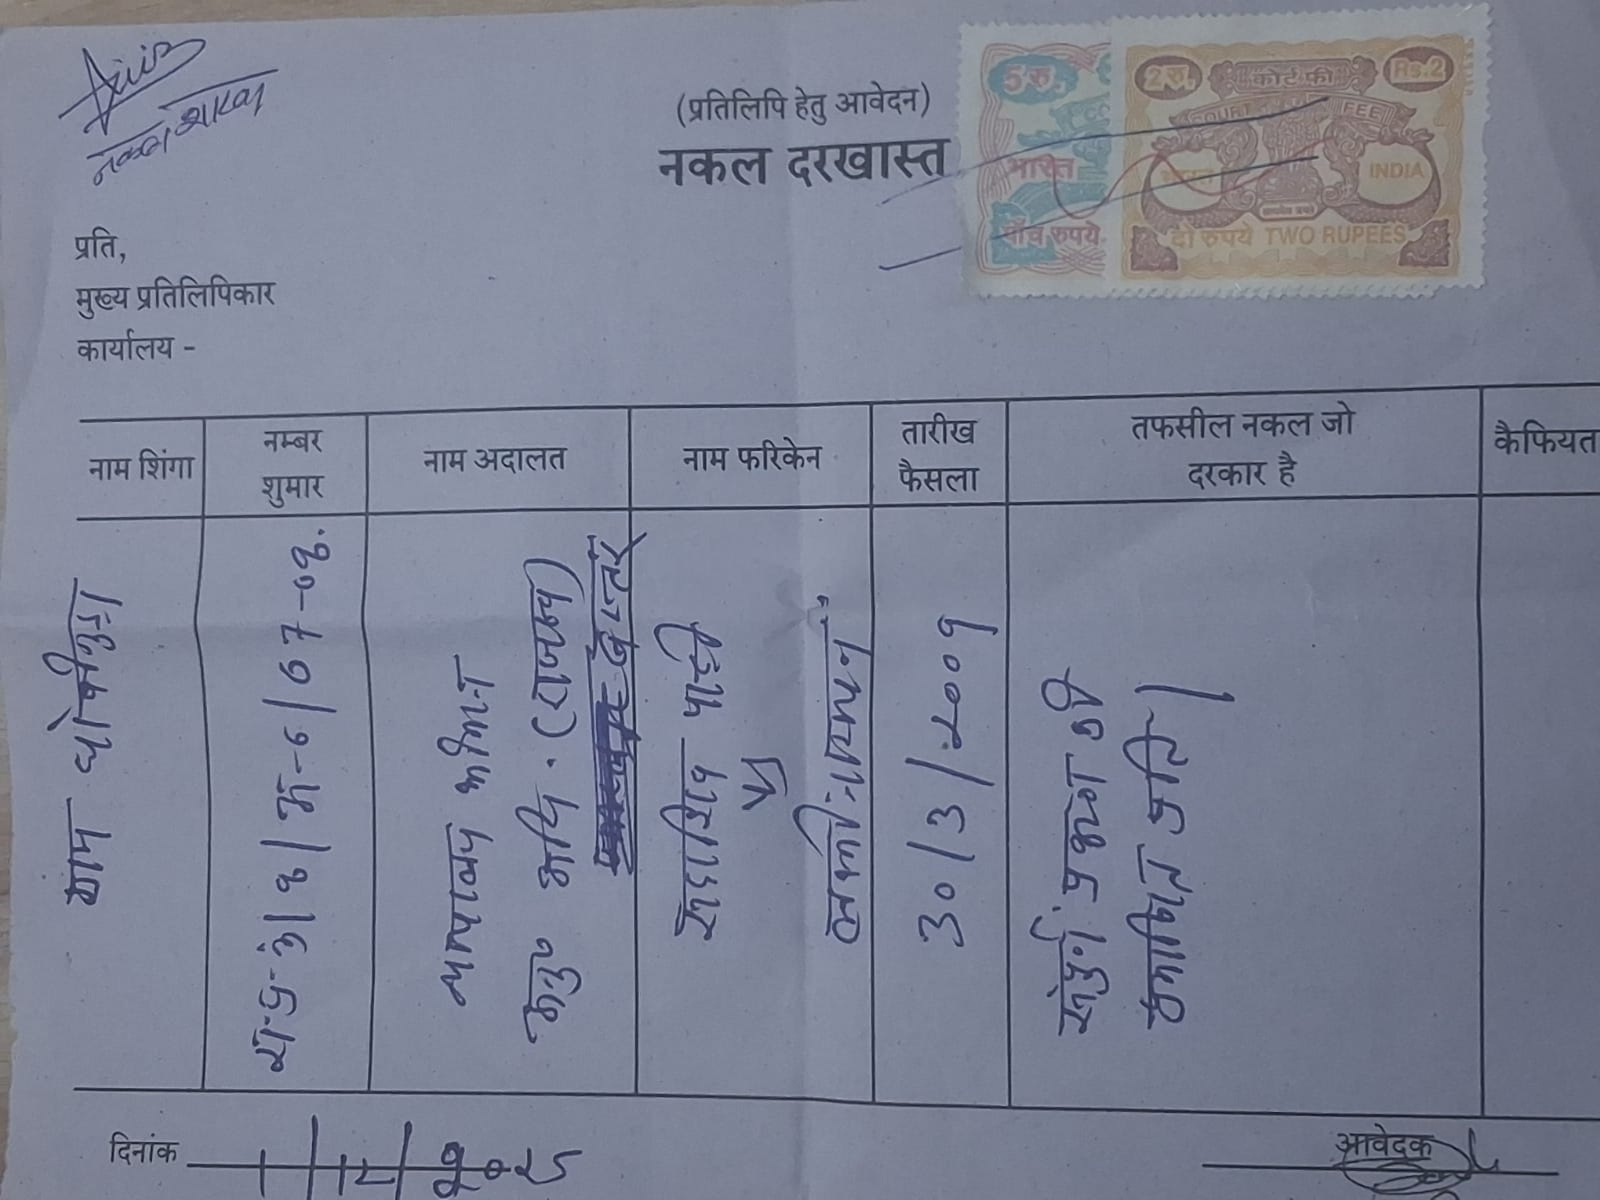 नकल शाखा
(प्रतिलिपि हेतु आवेदन)
नकल दरखास्त
5 रु.
भारत
पाँच रुपये
2 रु. कोर्ट फी Rs.2
COURT FEE
भारत INDIA
दो रुपये TWO RUPEES
प्रति,
मुख्य प्रतिलिपिकार
कार्यालय -
नाम शिंगा
नम्बर
शुमार
नाम अदालत
नाम फरिकेन
तारीख
फैसला
तफसील नकल जो
दरकार है
कैफियत
ग्राम
रा.प्र.क्रं/१/अ-६/07-०८.
न्यायालय श्रीमान
अनु० अधि. (राजस्व)
सदाशिव पाढ़ी
लक्ष्मीनारायण
30/3/२००९
संपूर्ण प्रकरण की
प्रमाणित प्रति।
दिनांक 1/12/2025
आवेदक